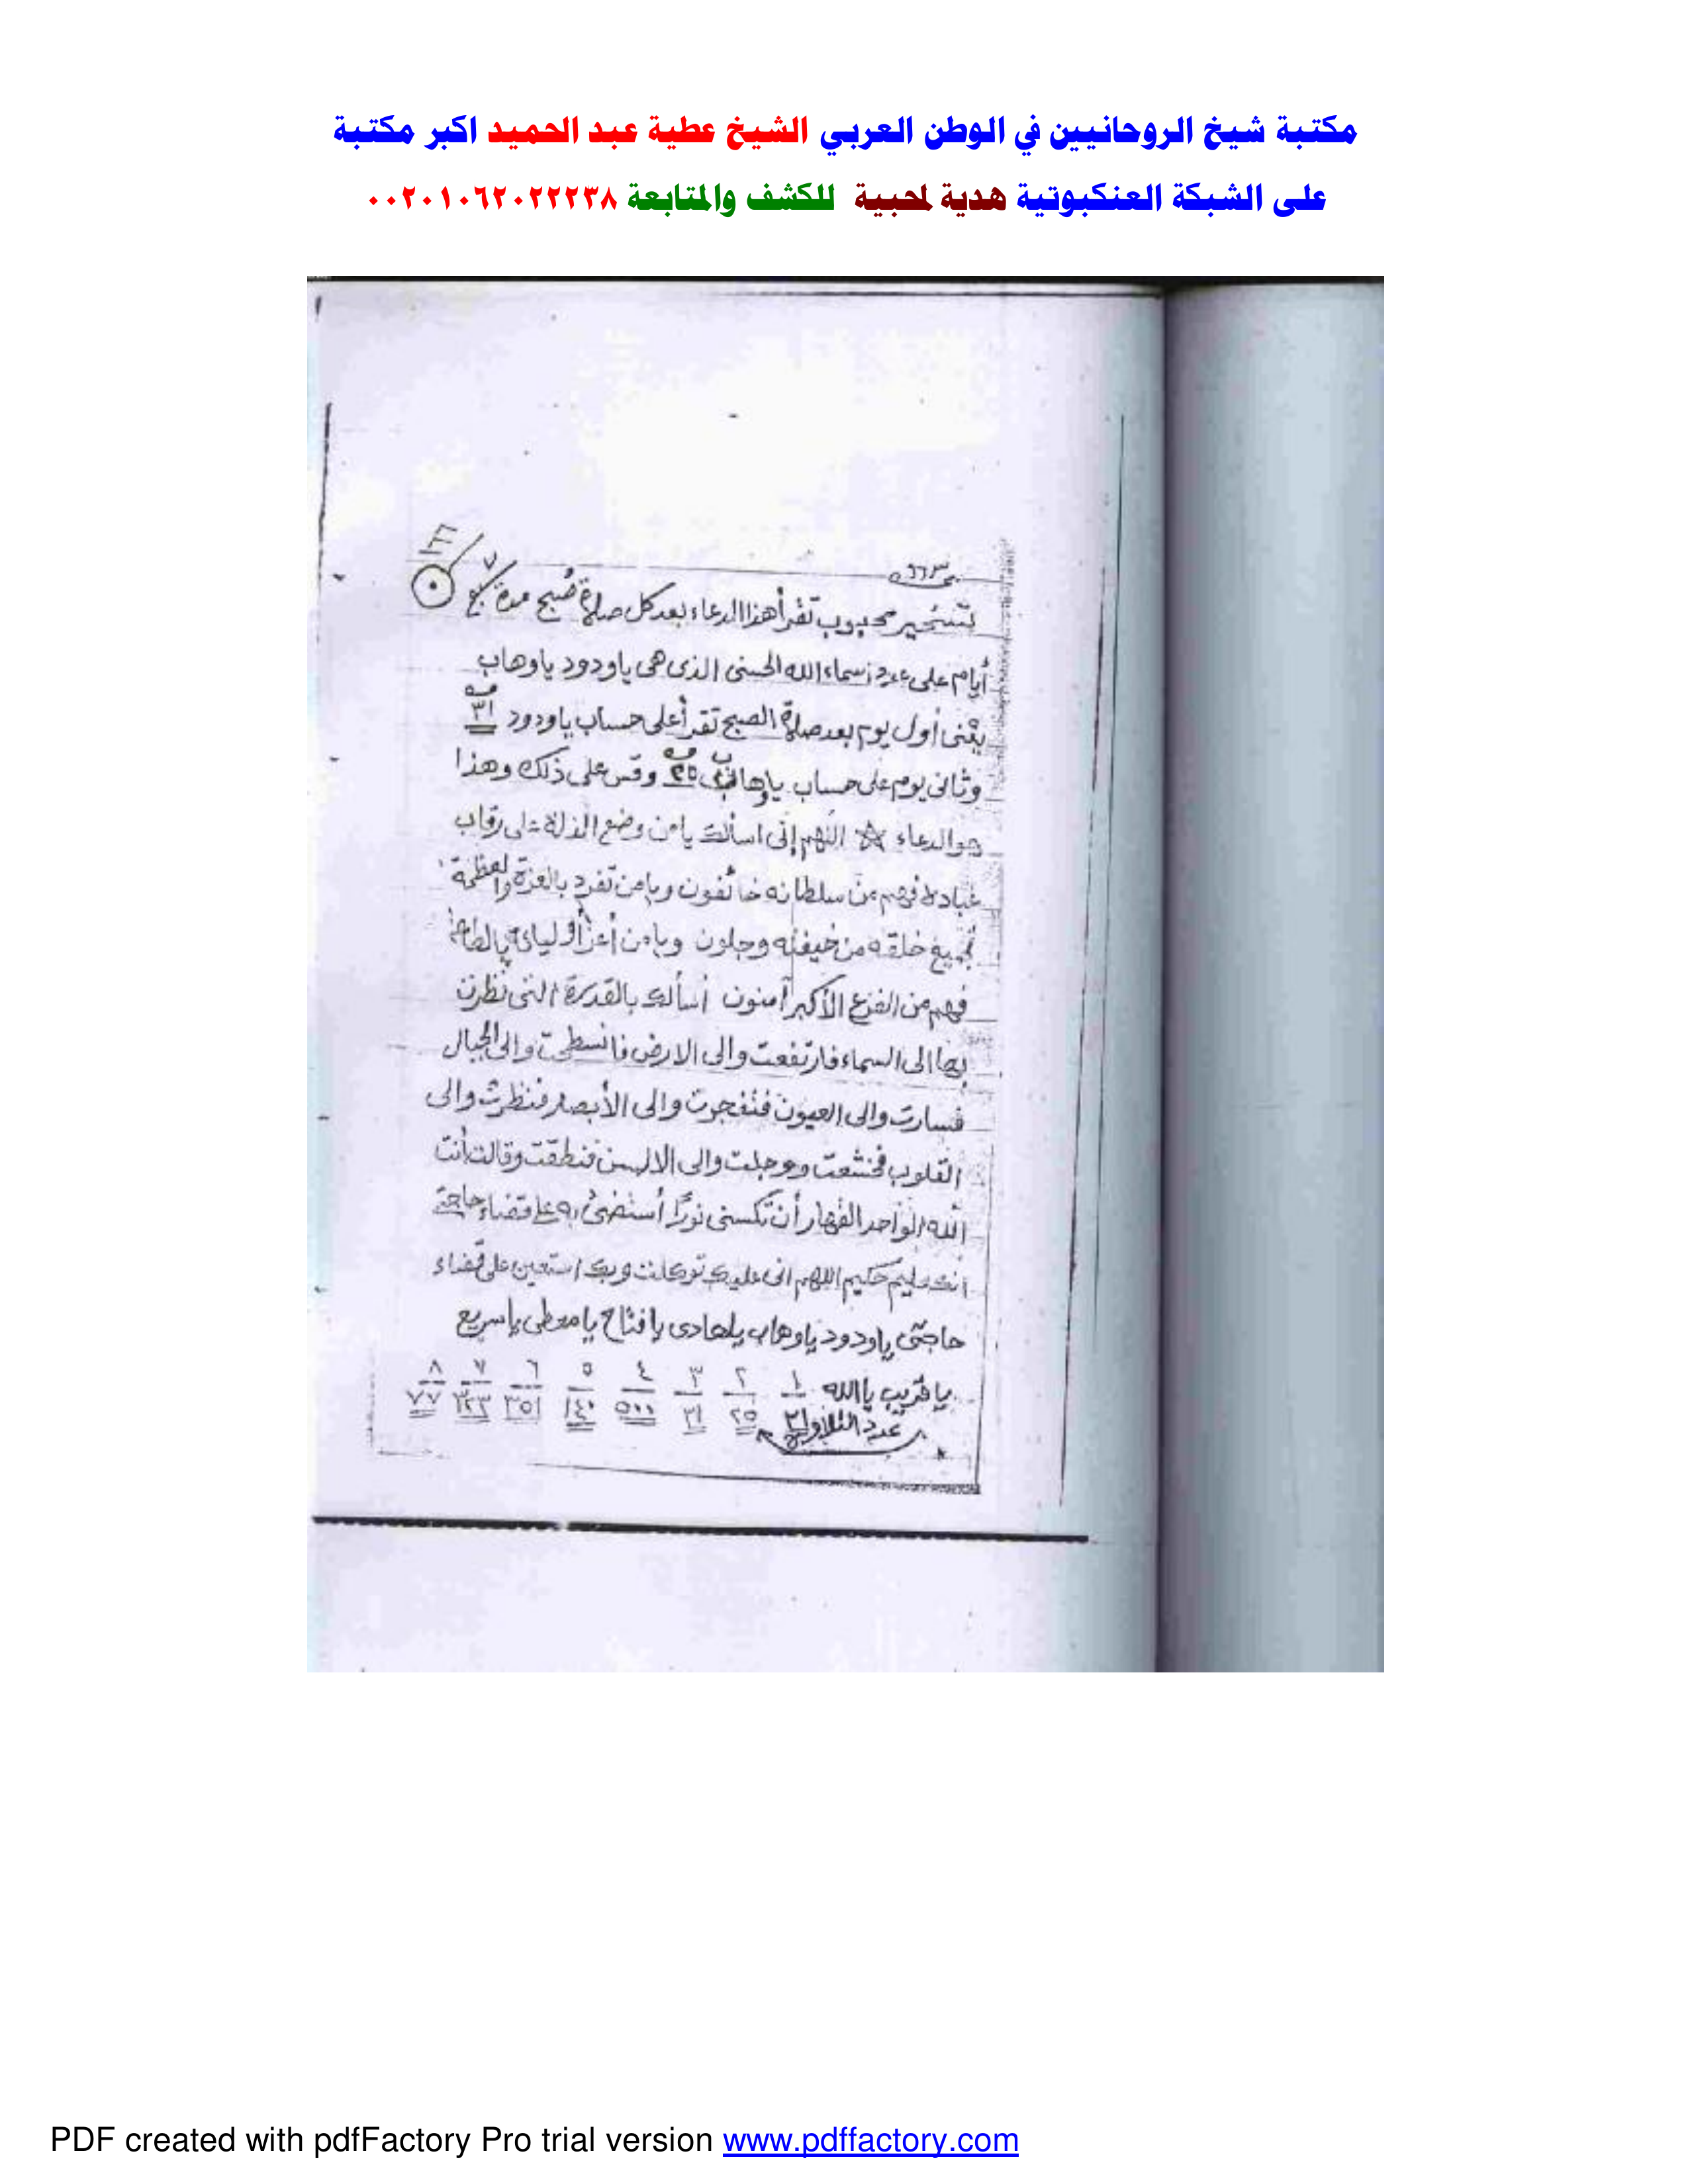 مكتبة شيخ الروحانيين في الوطن العربي الشيخ عطية عبد الحميد اكبر مكتبة
على الشبكة العنكبوتية هدية لمحبية للكشف والمتابعة ٠٠٢٠١٠٦٢٠٢٢٢٣٨
لتسخير محبوب تقرأ هذا الدعاء بعد كل صلاة صبح مدة ٧
أيام على عدد أسماء الله الحسنى الذى هى ياودود ياوهاب
يعنى أول يوم بعد صلاة الصبح تقرأ على حساب ياودود ٣١
وثانى يوم على حساب ياوهاب ٢٥ وقس على ذلك وهذا
هو الدعاء ☆ اللهم إنى اسألك يامن وضع الذلة على رقاب
عباده فهم من سلطانه خائفون ويامن تفرد بالعزة والعظمة
جميع خلقه من خيفته وجلون ويامن أعز أوليائه بالطاعة
فهم من الفزع الأكبر آمنون أسألك بالقدرة التى نظرت
بها الى السماء فارتفعت والى الارض فانسطحت والى الجبال
فسارت والى العيون فتفجرت والى الأبصار فنظرت والى
القلوب فخشعت ووجلت والى الالسن فنطقت وقالت أنت
الله الواحد القهار أن تكسنى نورًا أستضئ به على قضاء حاجتى
انك عليم حكيم اللهم انى عليك توكلت وبك استعين على قضاء
حاجتى ياودود ياوهاب ياهادى يافتاح يامعطى ياسريع
ياقريب ياالله ١ ٢ ٣ ٤ ٥ ٦ ٧ ٨
عدد التلاوة ٣١ ٢٥ ٣١ ٥٠٠ ١٤٠ ٣٥١ ٣٢٣ ٧٧
PDF created with pdfFactory Pro trial version www.pdffactory.com